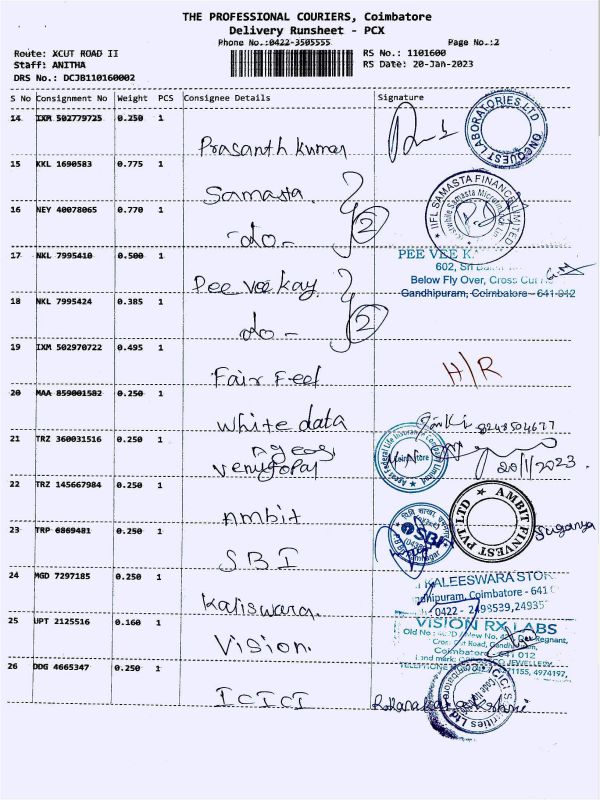 THE PROFESSIONAL COURIERS, Coimbatore
Delivery Runsheet - PCX
Phone No.:0422-3505555
Page No.:2
Route: XCUT ROAD II
RS No.: 1101600
Staff: ANITHA
RS Date: 20-Jan-2023
DRS No.: DCJB110160002
S No Consignment No Weight PCS Consignee Details Signature
14 IXM 502779725 0.250 1
Prasanth kumar
ONCQUEST LABORATORIES LTD
15 KKL 1690583 0.775 1
Samasta
IIFL SAMASTA FINANCE LIMITED
16 NEY 40078065 0.770 1
-do- 2
17 NKL 7995410 0.500 1
Pee vee kay
PEE VEE K
602, Sri
Below Fly Over, Cross Cut
Gandhipuram, Coimbatore - 641 012
18 NKL 7995424 0.385 1
-do- 2
19 IXM 502970722 0.495 1
Fair Feel
H/R
20 MAA 859001582 0.250 1
White data
21 TRZ 360031516 0.250 1
Ageas
Venugopal
Ageas Federal Life Insurance Company Limited
Coimbatore
20/1/2023.
22 TRZ 145667984 0.250 1
Ambit
AMBIT FINVEST PVT. LTD
Suganya
23 TRP 6869481 0.250 1
SBI
SBI
24 MGD 7297185 0.250 1
Kaliswara.
KALEESWARA STOR
dhipuram, Coimbatore - 641 0
0422 - 2498539,24935
25 UPT 2125516 0.160 1
Vision.
VISION RX LABS
Old No
New No. 42
Cross Cut Road, Gandhipuram,
Coimbatore - 641 012
Land mark:
JEWELLERY
TELEPHONE
4971155, 4974197,
26 DDG 4665347 0.250 1
ICICI
ICICI Securities Ltd